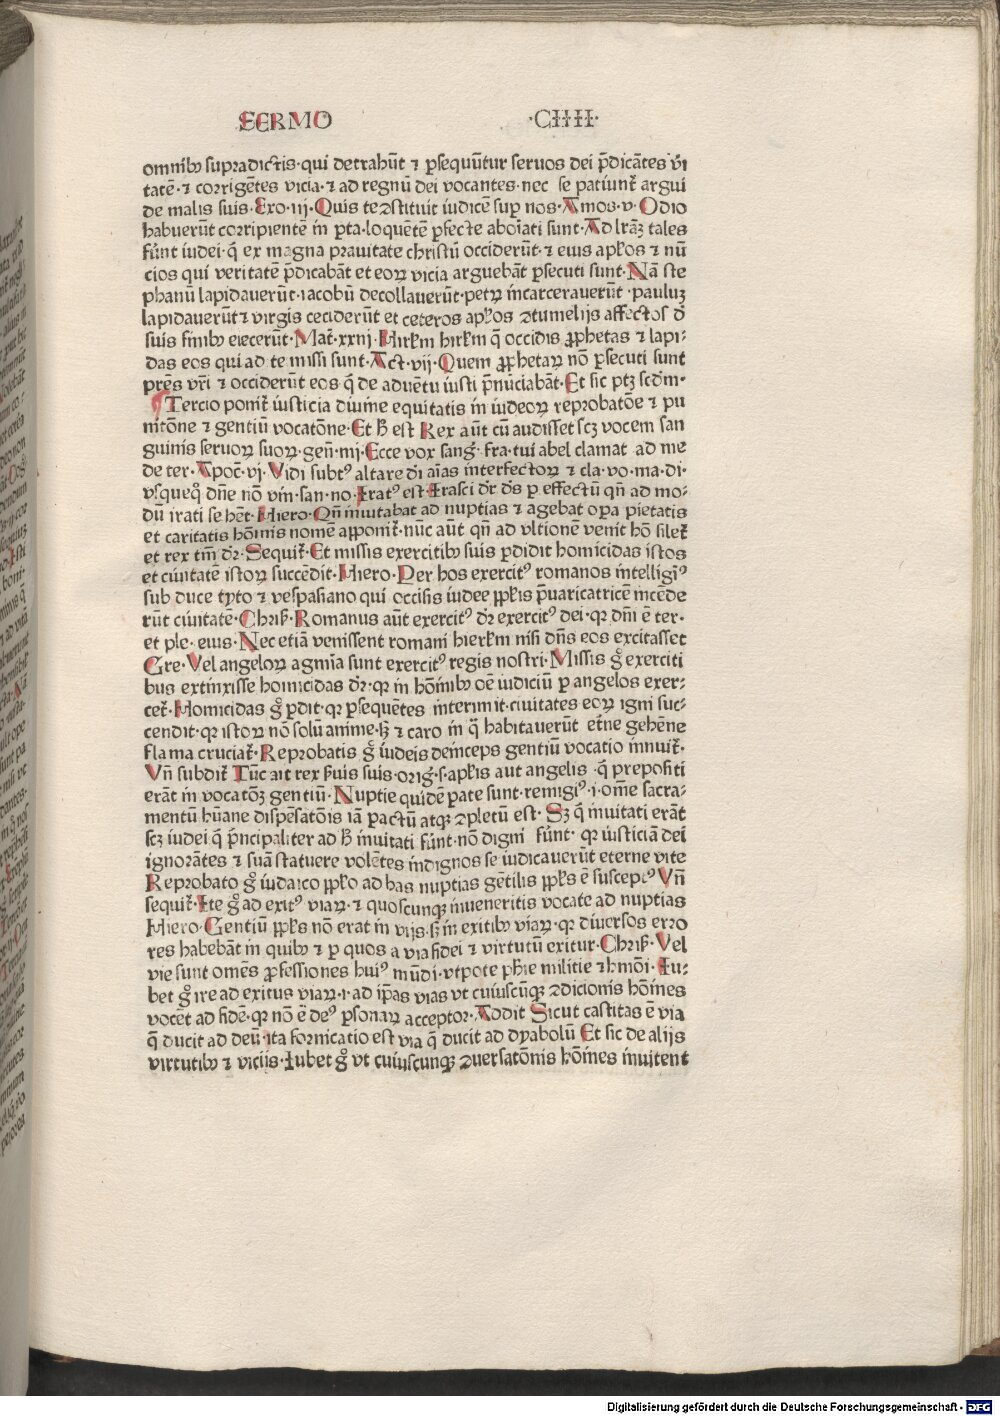 SERMO ·CIIII·
omnibꝰ supradictis·qui detrahūt ⁊ ꝑsequūtur seruos dei p̄dicātes v̄i
tatē·⁊ corrigētes vicia·⁊ ad regnū dei vocantes·nec se patiunt̄ argui
de malis suis·Exo·iij·Quis te ꝯstituit iudicē suꝑ nos·Amos·v·Odio
habuerūt corripientē in ꝑta·loquētē ꝑfecte aboīati sunt·Ad lr̄aꝫ tales
fūnt iudei·q̄ ex magna prauitate christū occiderūt·⁊ eius apl̄os ⁊ nū
cios qui veritatē p̄dicabāt et eoꝝ vicia arguebāt ꝑsecuti sunt·Nā ste
phanū lapidauerūt·iacobū decollauerūt·petꝝ incarcerauerūt·pauluꝫ
lapidauerūt ⁊ virgis ceciderūt et ceteros apl̄os ꝯtumelijs affectos d̄
suis finibꝰ eiecerūt·Mat̄·xxiij·Hirl̄m hirl̄m q̄ occidis ꝓphetas ⁊ lapi-
das eos qui ad te missi sunt·Act·vij·Quem ꝓphetaꝝ nō ꝑsecuti sunt
pr̄es vr̄i ⁊ occiderūt eos q̄ de aduētu iusti p̄nūciabāt·Et sic ptꝫ scd̄m·
¶Tercio ponit̄ iusticia diuine equitatis in iudeoꝝ reprobatōe ⁊ pu
nitōne ⁊ gentiū vocatōne·Et h̄ est Rex aūt cū audisset scꝫ vocem san
guinis seruoꝝ suoꝝ·gen̄·iiij·Ecce vox sanḡ·fra·tui abel clamat ad me
de ter·Apoc̄·vj·Vidi subtꝰ altare dei aīas interfectoꝝ ⁊ cla·vo·ma·di·
vsqueq̄ dn̄e nō vin·san·no·Iratꝰ est·Irasci dr̄ ds̄ ꝑ effectū qn̄ ad mo-
dū irati se hēt·Hiero·Qn̄ inuitabat ad nuptias ⁊ agebat opa pietatis
et caritatis hōinis nomē apponit̄·nūc aūt qn̄ ad vltionē venit hō silet̄
et rex tm̄ dr̄·Sequit̄·Et missis exercitibꝰ suis ꝑdidit homicidas istos
et ciuitatē istoꝝ succēdit·Hiero·Per hos exercitꝰ romanos intelligīꝰ
sub duce tyto ⁊ vespasiano qui occisis iudee ppl̄is p̄uaricatricē incēde
rūt ciuitatē·Chriſ̄·Romanus aūt exercitꝰ dr̄ exercitꝰ dei·qꝛ dn̄i ē ter·
et ple·eius·Nec etiā venissent romani hierl̄m nisi dn̄s eos excitasset
Gre·Vel angeloꝝ agmīa sunt exercitꝰ regis nostri·Missis g̊ exerciti
bus extinxisse homicidas dr̄·qꝛ in hōinibꝰ oē iudiciū ꝑ angelos exer-
cet̄·Homicidas g̊ ꝑdit·qꝛ ꝑsequētes interimit·ciuitates eoꝝ igni suc-
cendit·qꝛ istoꝝ nō solū anime·sꝫ ⁊ caro in q̄ habitauerūt etn̄e gehēne
flama cruciat̄·Reprobatis g̊ iudeis deinceps gentiū vocatio innuit̄·
Vn̄ subdit̄ Tūc ait rex s̄uis suis·oriḡ·s·apl̄is aut angelis·q̄ prepositi
erāt in vocatōꝫ gentiū·Nuptie quidē ꝑate sunt·remigiꝰ·i·om̄e sacra-
mentū hūane dispēsatōis iā ꝑactū atqꝫ ꝯpletū est·Sꝫ q̄ inuitati erāt
scꝫ iudei q̄ p̄ncipaliter ad h̄ inuitati fūnt·nō digni fūnt·qꝛ iusticiā dei
ignorātes ⁊ suā statuere volētes indignos se iudicauerūt eterne vite
Reprobato g̊ iudaico ppl̄o ad has nuptias gētilis ppl̄s ē susceptꝰ Vn̄
sequit̄·Ite g̊ ad exitꝰ viaꝝ·⁊ quoscunqꝫ inueneritis vocate ad nuptias
Hiero·Gentiū ppl̄s nō erat in vijs·sꝫ in exitibꝰ viaꝝ·qꝛ diuersos erro
res habebāt in quibꝰ ⁊ ꝑ quos a via fidei ⁊ virtutū exitur·Chriſ̄·Vel
vie sunt omēs ꝓfessiones huiꝰ mūdi·vtpote ph̄ie militie ⁊ h̄mōi·Iu-
bet g̊ ire ad exitus viaꝝ·i·ad ip̄as vias vt cuiuscūqꝫ ꝯdicionis hōines
vocēt ad fidē·qꝛ nō ē deꝰ ꝑsonaꝝ acceptor·Addit Sicut castitas ē via
q̄ ducit ad deū·ita fornicatio est via q̄ ducit ad dyabolū Et sic de alijs
virtutibꝰ ⁊ viciis·Iubet g̊ vt cuiuscunqꝫ ꝯuersatōnis hōines inuitent
Digitalisierung gefördert durch die Deutsche Forschungsgemeinschaft - DFG